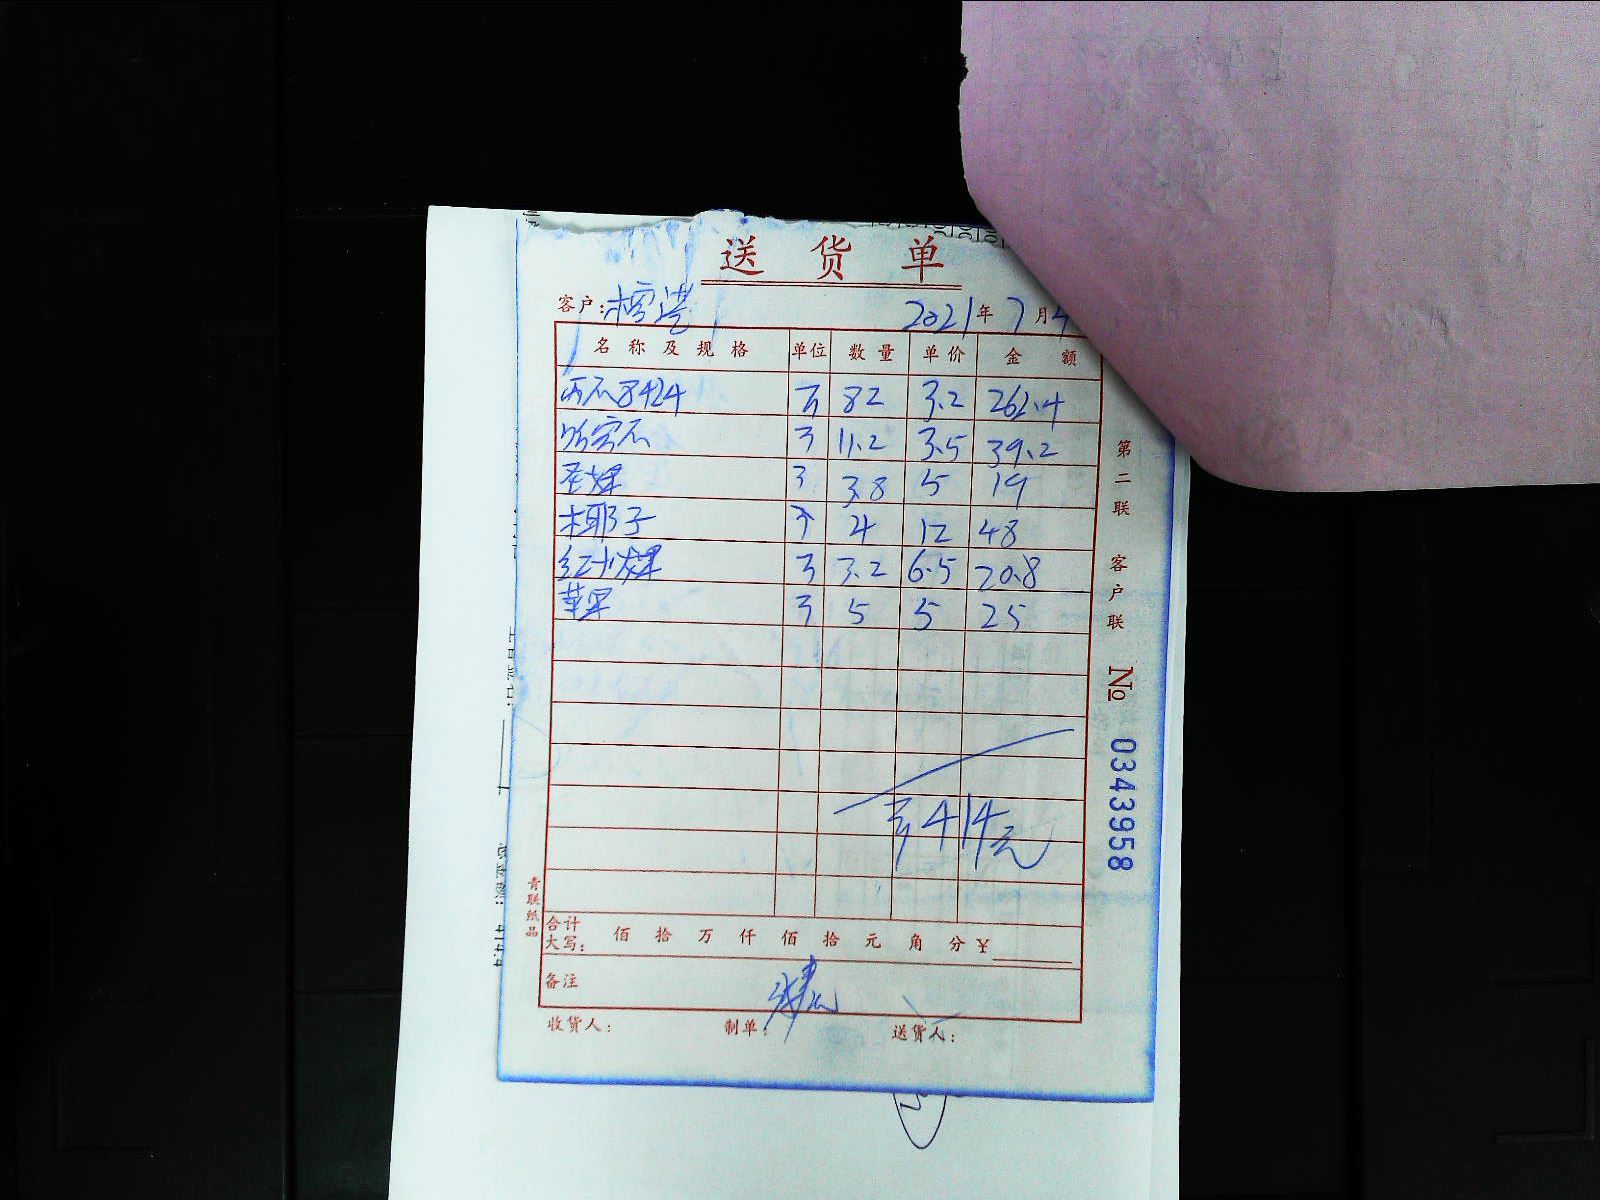 送货单
客户:
2021年7月4
名称及规格 单位 数量 单价 金额
西瓜8424 斤 82 3.2 262.4
哈密瓜 斤 11.2 3.5 39.2
圣女果 斤 3.8 5 19
椰子 个 4 12 48
红火龙果 斤 3.2 6.5 20.8
苹果 斤 5 5 25
414元
合计大写: 佰 拾 万 仟 佰 拾 元 角 分 ¥
备注
收货人: 制单: 送货人:
第二联 客户联 No 0343958
青联纸品